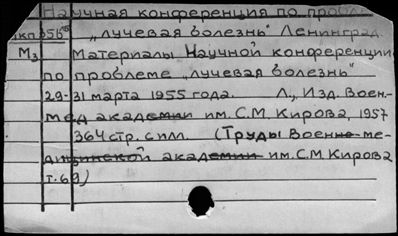 Научная конференция по пробле
"лучевая болезнь" Ленинград
М3 Материалы Научной конференции
по проблеме "лучевая болезнь"
29-31 марта 1955 года. Л., Изд. Воен.-
мед академии им. С.М. Кирова, 1957
364 стр. с илл. (Труды Военно-ме-
дицинской академии им. С.М Кирова
т. 69)